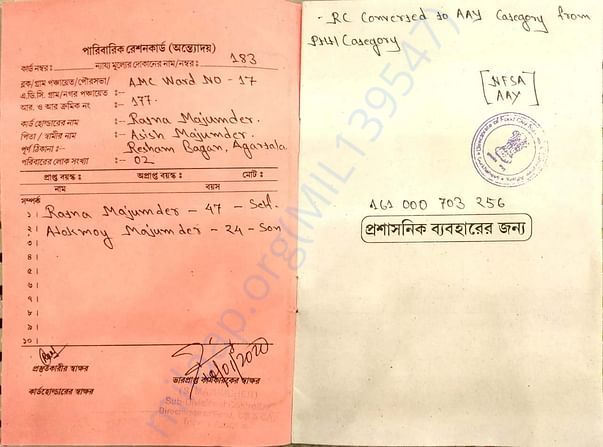 পারিবারিক রেশনকার্ড (অন্ত্যোদয়)
কার্ড নম্বর :— ন্যায্য মূল্যের দোকানের নাম/নম্বর : 183
ব্লক/গ্রাম পঞ্চায়েত/পৌরসভা/
এ.ডি.সি. গ্রাম/নগর পঞ্চায়েত :- AMC Ward NO - 17
আর. ও আর ক্রমিক নং :- 177.
কার্ড হোল্ডারের নাম :- Ratna Majumder.
পিতা / স্বামীর নাম :- Asish Majumder.
পূর্ণ ঠিকানা :- Resham Bagan, Agartala
পরিবারের লোক সংখ্যা :- 02
প্রাপ্ত বয়স্ক : অপ্রাপ্ত বয়স্ক : মোট :
নাম বয়স
সম্পর্ক
১। Ratna Majumder - 47 - Self.
২। Alokmoy Majumder - 24 - Son
৩।
৪।
৫।
৬।
৭।
৮।
৯।
১০।
প্রস্তুতকারীর স্বাক্ষর
ভারপ্রাপ্ত আধিকারিকের স্বাক্ষর
কার্ডহোল্ডারের স্বাক্ষর
- RC Conversed to AAY Category from
PHH Category
NFSA
AAY
161 000 703 256
প্রশাসনিক ব্যবহারের জন্য
milaap.org(MIL139547)